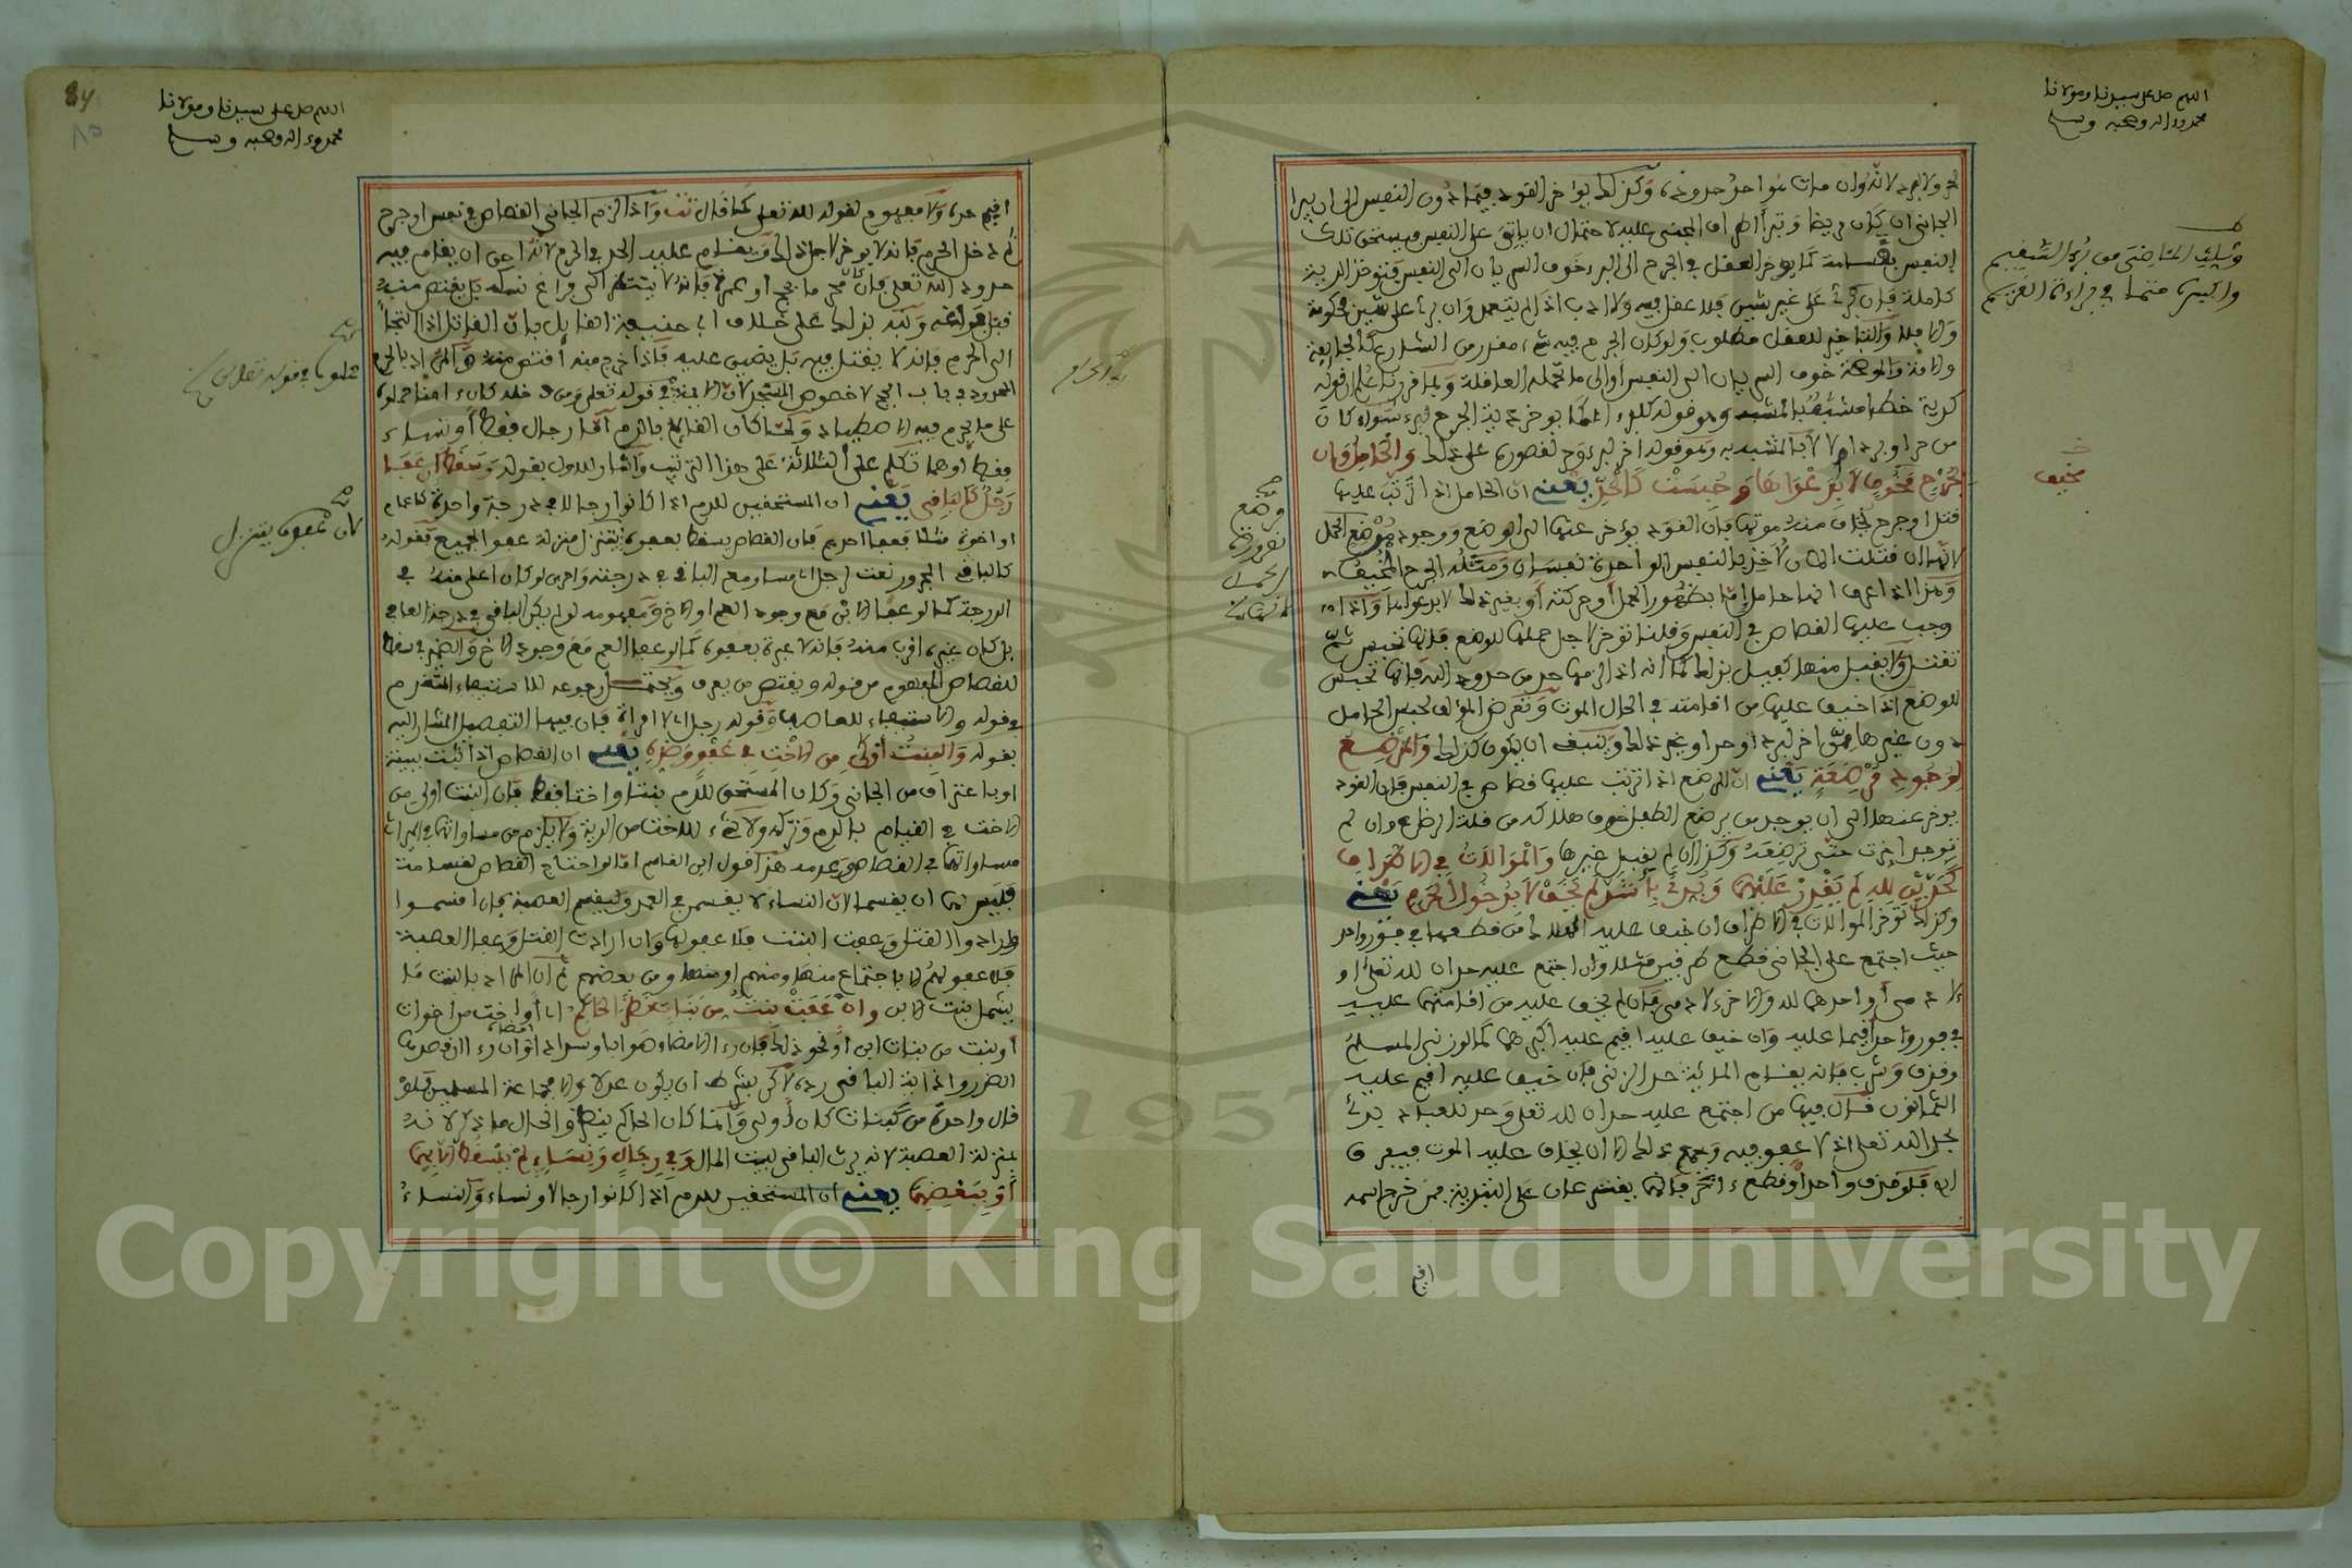 اللهم صل على سيدنا ومولانا
محمد وءاله وصحبه وسلم
لحر ولا لبرد لانه وان مات فهو احد حدوده وكذلك يؤخر القود فيما دون النفس الى ان يبرا
الجانى ان كان مريضا وتبرأ اطراف المجنى عليه لاحتمال ان ياتى على النفس فيستحق تلك
النفس بقسامة كما يؤخر العقل في الجرح الى البرء خوف السريان الى النفس فتؤخذ الدية
كاملة فإن برئ على غير شين فلا عقل فيه ولا ادب اذا لم يتعمد وان برئ على شين فحكومة
والا فلا والتاخير للعقل مطلوب ولو كان الجرح فيه شىء مقدر من الشارع كالجايفة
والآمة والموضحة خوف السريان الى النفس أو الى ما تحمله العاقلة
كدية خطإ وهو قوله كلبرء اى كما يؤخر دية الجرح لبرء سواء كان
من حر او برد ام لا والحامل وان
بجرح مخوف لا بدعواها وحبست كالحد يعنى ان الحامل اذا ترتب عليها
قتل او جرح يخاف منه موتها فإن القود يؤخر عنها الى الوضع ووجود مرضع الحمل
لانها ان قتلت الان لأخذ بالنفس الواحدة نفسان ومثله الجرح المخيف
وهذا اذا عرف انها حامل اما بظهور الحمل أو حركته أو بغير ذلك لا بدعواها واذا
وجب عليها القصاص في النفس وقلنا تؤخر لاجل حملها للوضع فإنها تحبس ثم
تقتل ولا يقبل منها كفيل بذلك كما انه اذا لزمها حد من حدود الله فإنها تحبس
للوضع اذا خيف عليها من اقامته في الحال الموت وتعرض المؤلف لحبس الحامل
دون غيرها ممن اخر لبرد او حر او نحو ذلك وينبغى ان يكون كذلك والمرضع
لوجود مرضعة يعنى ان المرضع اذا ترتب عليها قصاص في النفس فإن القود
يؤخر عنها الى ان يوجد من يرضع الطفل خوف هلاكه من قلة الرضاع وان لم
توجد اخرت حتى ترضعه وكذا ان لم يقبل غيرها والموالاة في الاطراف
كحدين لله لم يقدر عليهما وبدئ بأشد لم يخف لا بدخول الحرم يعنى
وكذلك تؤخر الموالاة في الاطراف ان خيف عليه الهلاك من قطعها في فور واحد
حيث اجتمع على الجانى قطع طرفين مثلا وان اجتمع عليه حدان لله تعلى او
لآدمى أو احدهما لله والاخر لآدمى فإن لم يخف عليه من اقامتهما عليه
في فور واحد اقيما عليه وان خيف عليه اقيم عليه اكبرهما كما لو زنى المسلم
وقذف وشرب فإنه يقدم المائية حد الزنى فإن خيف عليه اقيم عليه
الثمانون قال فيها من اجتمع عليه حدان لله تعلى وحد للعباد بدئ
بحد الله تعلى اذ لا عفو فيه ويجمع ذلك الا ان يخاف عليه الموت فيفرق
اه فلو قذف واحدا وقطع ءاخر فإنهما يقترعان على التبدية فمن خرج اسمه
اقيم
مخيف
اللهم صل على سيدنا ومولانا
محمد وءاله وصحبه وسلم
84
٨٥
اقيم حده ولا مفهوم لقوله لله تعلى كما قال تت واذا لزم الجانى القصاص في نفس او جرح
ثم دخل الحرم فإنه لا يؤخر لاجل ذلك ويقام عليه الحد في الحرم لانه احق ان يقام فيه
حدود الله تعلى فإن كان محرما بحج أو عمرة فإنه لا ينتظر الى فراغ نسكه بل يقتص منه
قبل فراغه ونبه بذلك على خلاف ابى حنيفة القايل بأن القاتل اذا التجأ
الى الحرم فإنه لا يقتل فيه بل يضيق عليه فإذا خرج منه اقتص منه والمراد بالحرم
المحدود في باب الحج لا خصوص المسجد لأن الاية في قوله تعلى ومن دخله كان ءامنا
على ما يحرم فيه الاصطياد ولما كان القايم بالدم اما رجال فقط أو نساء
فقط أو هما تكلم على الثلاثة على هذا الترتيب وأشار للاول بقوله وسقط ان عفا
رجل كالباقى يعنى ان المستحقين للدم اذا كانوا رجالا في درجة واحدة كاعمام
او اخوة مثلا فعفا احدهم فإن القصاص يسقط بعفوه يتنزل منزلة عفو الجميع فقوله
كالباقى المجرور نعت لرجل اى مساو مع الباقى في درجته واحرى لو كان اعلى منه في
الدرجة كما لو عفا الابن مع وجود العم او الاخ ومفهومه لو لم يكن الباقى في درجة العافى
بل كان غيره اقرب منه فإنه لا عبرة بعفوه كما لو عفا العم مع وجود الاخ والضمير في سقط
للقصاص المفهوم من قوله ويقتص من يعرف ويحتمل رجوعه للاستيفاء المتقدم
في قوله والاستيفاء للعاصب وقوله رجل اى لا امراة فإن فيها التفصيل المشار اليه
بقوله والبنت أولى من الاخت في عفو وضده يعنى ان القصاص اذا ثبت ببينة
او باعتراف من الجانى وكان المستحق للدم بنتا واختا فقط فإن البنت اولى من
الاخت في القيام بالدم وتركه ولا شىء للاخت من الدية ولا يلزم من مساواتها في الميراث
مساواتها في القصاص وعدمه هذا قول ابن القاسم اما لو احتاج القصاص لقسامة
فليس لهما ان يقسما لان النساء لا يقسمن في العمد وليقسم العصبة فإن اقسموا
وارادوا القتل وعفت البنت فلا عفو لها وان ارادت القتل وعفا العصبة
فلا عفو لهم الا باجتماع منها ومنهم او منها ومن بعضهم ثم ان المراد بالبنت ما
يشمل بنت الابن وان عفت بنت من بنات نظر الحاكم اى أو اخت من اخوات
أو بنت من بنات ابن أو نحو ذلك فإن رءا الامضاء صوابا وسدادا امضاه وان رءا ان قصدها
الضرر واذاية الباقى رده لاكن بشرط ان يكون عدلا والا فجماعة المسلمين فلو
قال واحدة من كبنات كان أولى وانما كان الحاكم ينظر والحال ما ذكر لانه
بمنزلة العصبة لانه يرث الباقى لبيت المال وفى رجال ونساء لم يسقط الا بهما
أو ببعضهما يعنى ان المستحقين للدم اذا كانوا رجالا ونساء والنساء
لان عفوه يتنزل